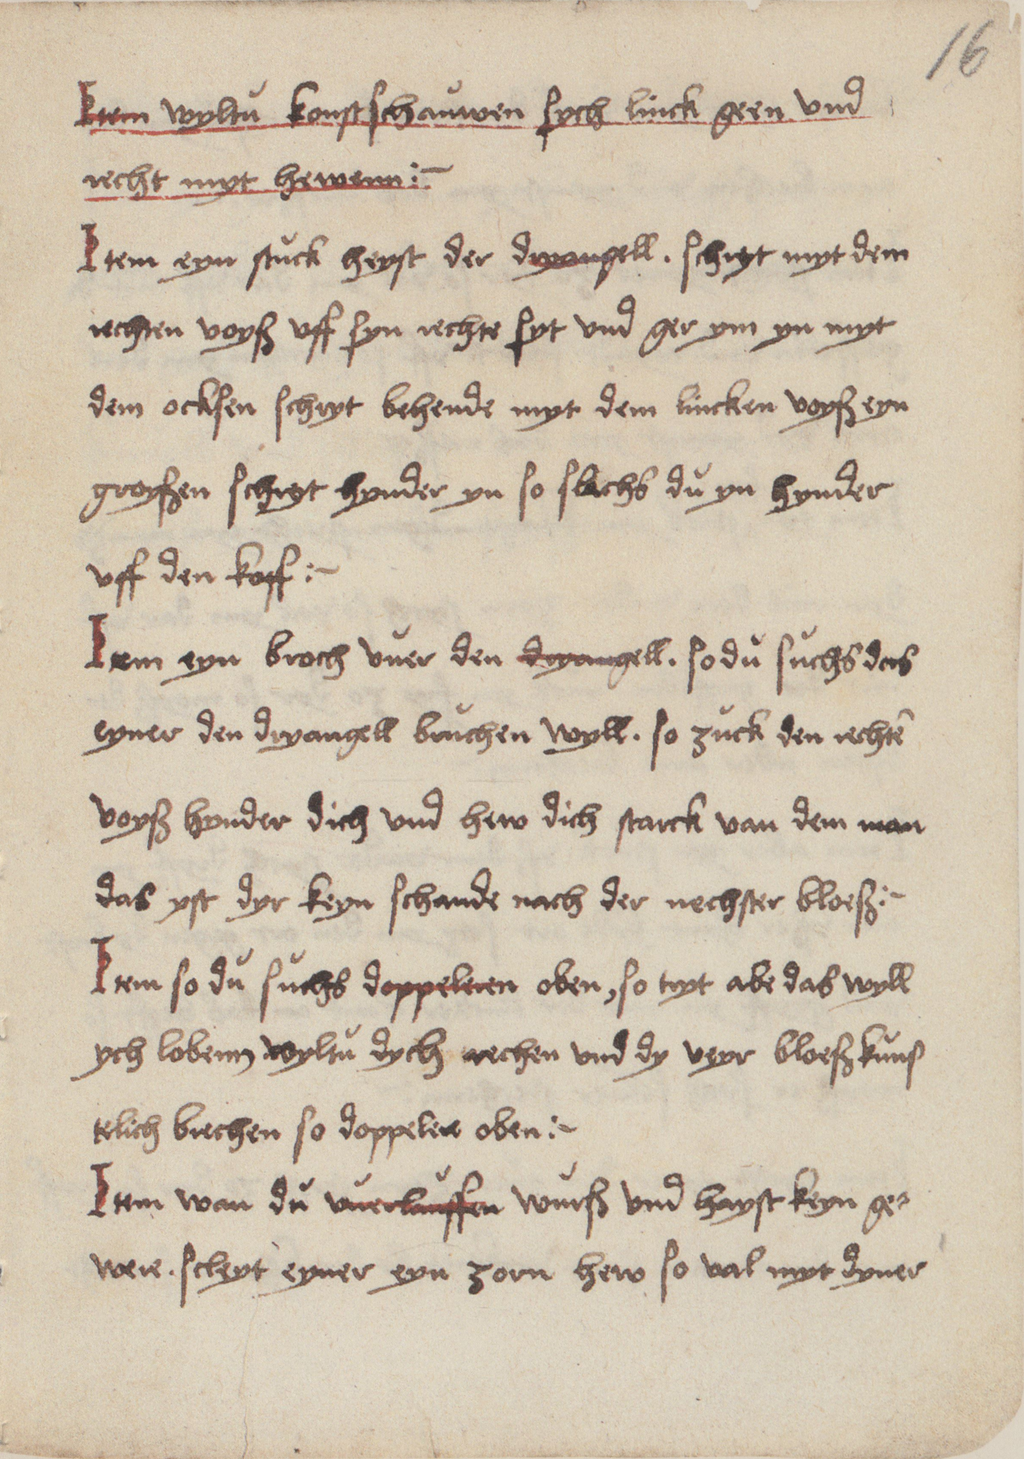 16
Item wyltu konst schauwen sych linck geen vnd
recht myt hewenn :~
Item eyn stuck heyst der dryangell . schryt myt dem
rechten voyß vff syn rechte syt vnd ger ym yn myt
dem ocksen schryt behende myt dem lincken voyß eyn
groyßen schryt hynder yn so slechs du yn hynder
vff den koff :~
Item eyn broch vuer den dryangell . so du suchs das
eyner den dryangell bruchen wyll . so zuck den rechtē
voyß hynder dich vnd hew dich starck van dem man
das yst dyr keyn schande nach der nechster bloeß :~
Item so du suchs doppeleren oben , so tryt abe das wyll
ych lobenn wyltu dych rechen vnd dy veyr bloeß kuns
telich brechen so doppeler oben :~
Item wan du vuerlauffen wurß vnd hayst keyn ge-
were . scleyt eyner eyn zorn hew so val myt dyner